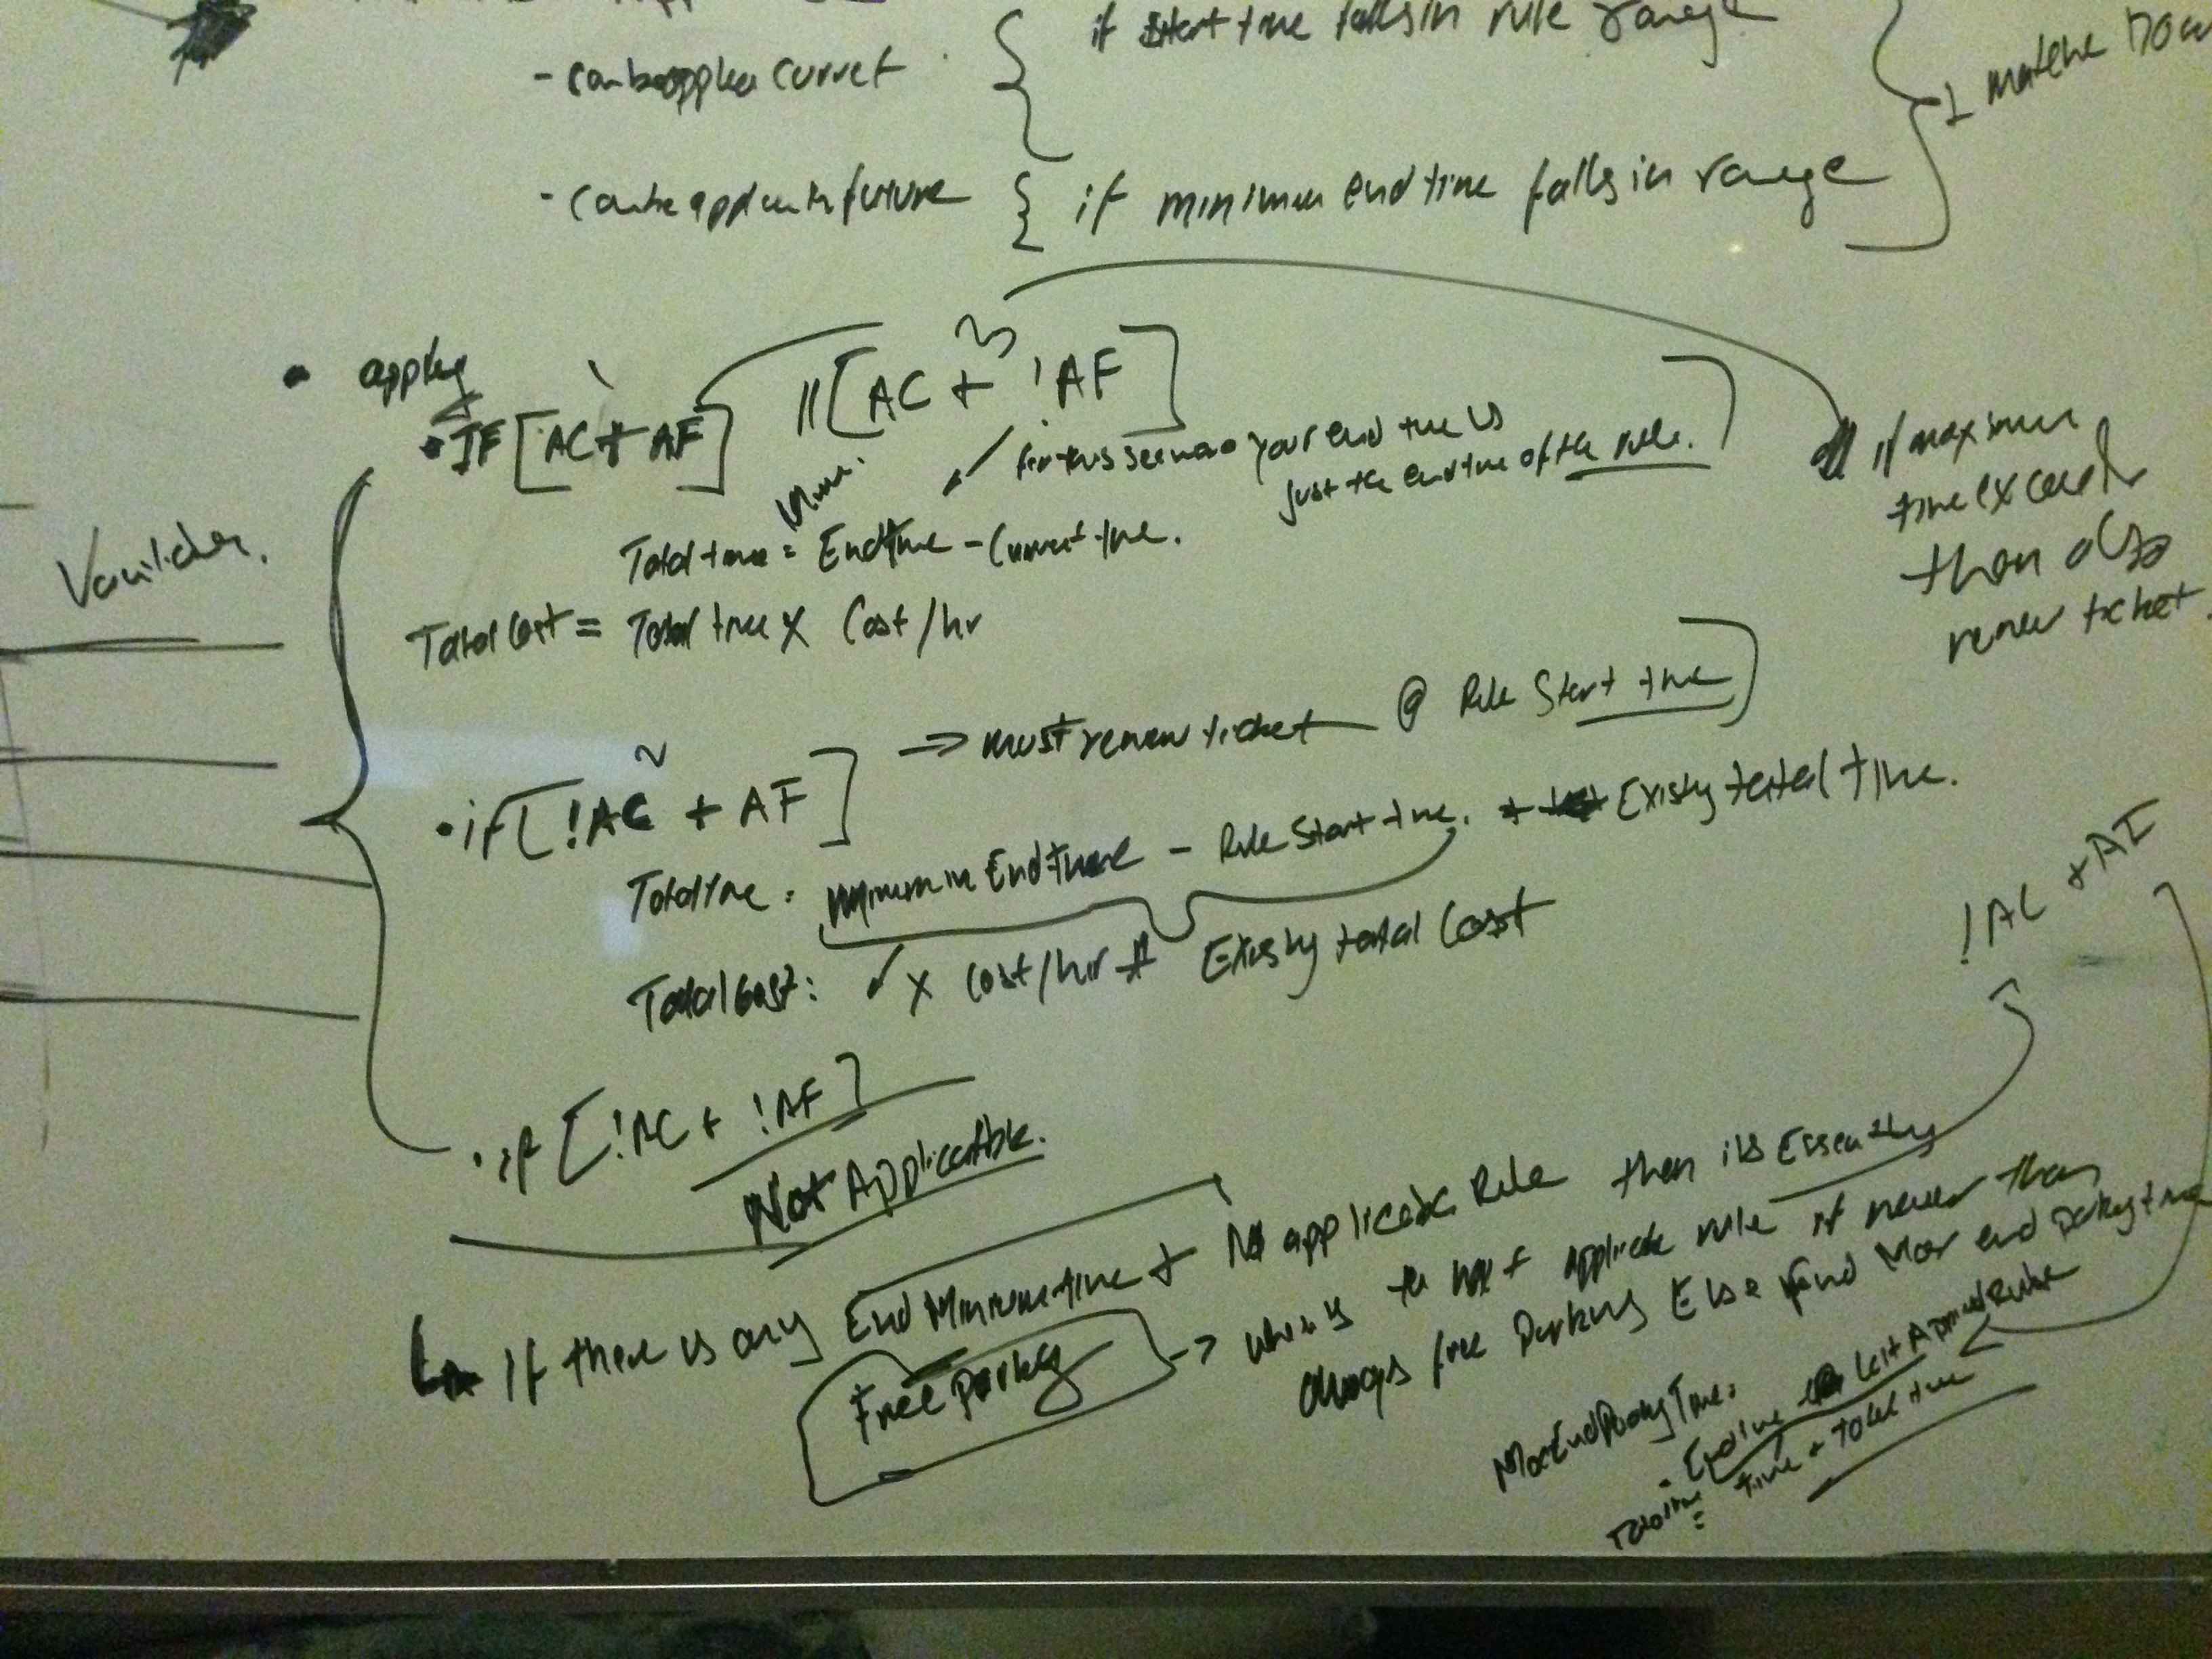 if start time falls in rule range
- can be applied current
- can be applied in future { if minimum end time falls in range
• apply
• IF [AC + AF] || [AC + !AF]
for this scenario your end time is
just the end time of the rule.
if maximum
time exceeds
than also
renew ticket.
Total time = End time - Current time.
Total Cost = Total time X Cost/hr
=> must renew ticket @ Rule Start time
• if [!AC + AF]
Total time = minimum End time - Rule Start time. + Existing total time.
Total Cost: ✓ x Cost/hr + Existing total Cost
!AC + AF
• if [!AC + !AF]
Not Applicable.
If there is any End Minimum time + No applicable Rule then its Essentially
Free Parking -> when is the next applicable rule if never than
always free Parking Else find Max end Parking time
Max End Parking Time:
time + Total time
Total time =